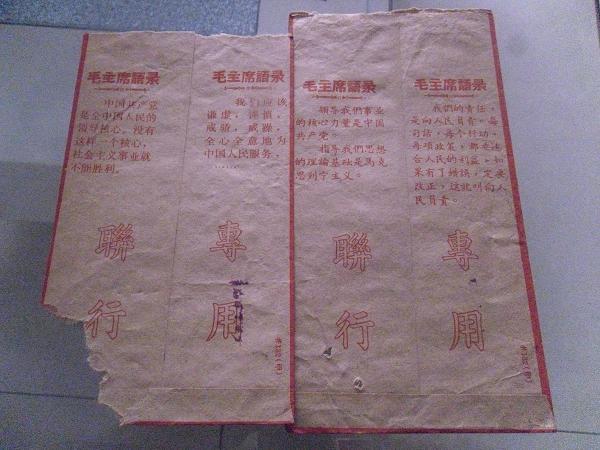 毛主席語录
中国共产党
是全中国人民的
領导核心。没有
这样一个核心，
社会主义事业就
不能胜利。
毛主席語录
我們应該
谦虛，谨慎，
戒骄，戒躁，
全心全意地为
中国人民服务，
……
聯行
專用
毛主席語录
領导我們事业
的核心力量是中国
共产党。
指导我們思想
的理論基础是馬克
思列宁主义。
毛主席語录
我們的責任，
是向人民負責。每
句話，每个行动，
每項政策，都要适
合人民的利益，如
果有了錯誤，定要
改正，这就叫向人
民負責。
聯行
專用